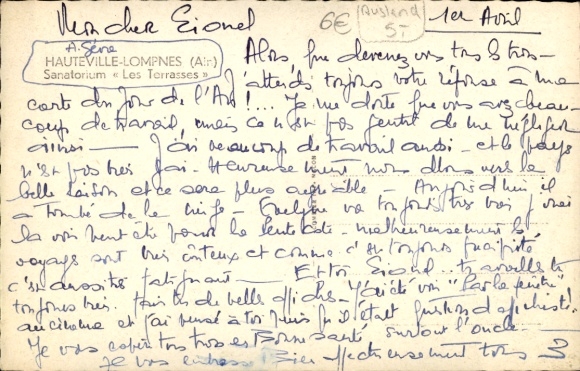 Mon cher Lionel
6€
Ausland
5.-
1er Avril
A. Sère
HAUTEVILLE-LOMPNES (Ain)
Sanatorium « Les Terrasses »
Alors que devenez vous tous les trois —
J'attends toujours votre réponse à ma
carte du Jour de l'An !... Je me doute que vous avez beau-
coup de travail, mais ce n'est pas gentil de me négliger
ainsi — J'ai beaucoup de travail aussi - et le pays
n'est pas très gai. Heureusement nous allons vers la
belle saison et ce sera plus agréable — Aujourd'hui il
a tombé de la neige - Evelyne va toujours très bien j'irai
la voir peut être pour la Pentecôte - malheureusement les
voyages sont très coûteux et comme c'est toujours
c'est aussi très fatiguant — Et toi Lionel.. travailles tu
toujours très. fais tu de belles affiches - J'ai été voir
au cinéma et j'ai pensé à toi puis qu'il était question d'affichiste!
Je vous espère tous trois en Bonne santé surtout l'oncle —
Je vous embrasse Bien affectueusement tous 3